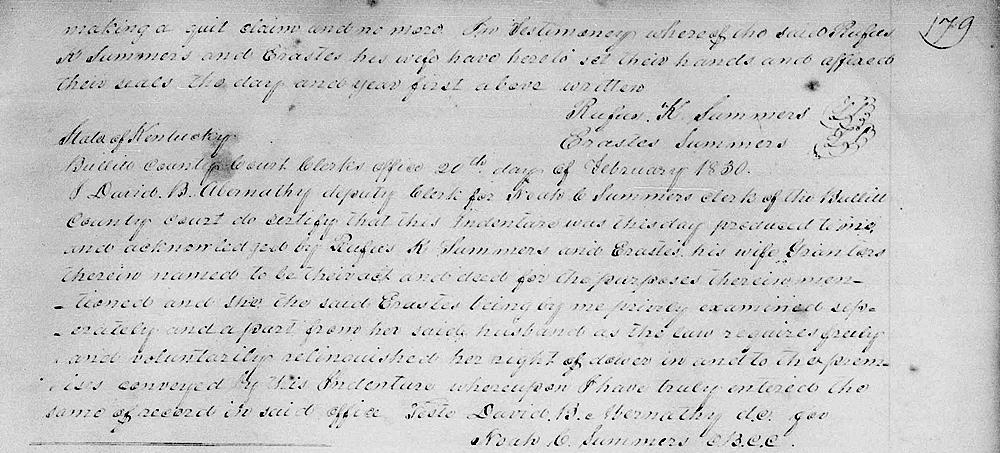 179
making a quit claim and no more In Testimoney whereof the said Rufus
K Summers and Erastes his wife have hereto set their hands and affixed
their seals the day and year first above written
Rufus K. Summers
Erastes Summers
State of Kentucky
Bullitt County Court Clerks office 20th day of February 1830.
I David. B. Abernathy deputy Clerk for Noah C Summers clerk of the Bullitt
County Court do certify that this Indenture was this day produced to me
and acknowledged by Rufus K Summers and Erastes his wife Grantors
therein named to be their act and deed for the purposes therein men-
-tioned and she the said Erastes being by me privily examined sep-
-erately and a part from her said husband as the law requires freely
and voluntarily relinquished her right of dower in and to the prem-
ises conveyed by this Indenture whereupon I have truly entered the
same of record in said office Teste David. B. Abernathy d.c. for
Noah C. Summers C.B.C.C.